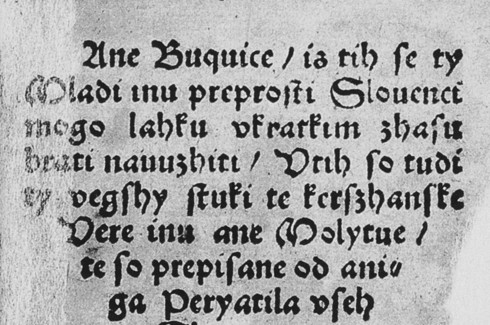 Ane Buquice / is tih se ty
Mladi inu preprosti Slouenci
mogo lahku vkratkim zhasu
brati nauuzhiti / Vtih so tudi
ty vegshy stuki te kerszhanske
Vere inu ane Molytue /
te so prepisane od ani⸗
ga Peryatila vseh